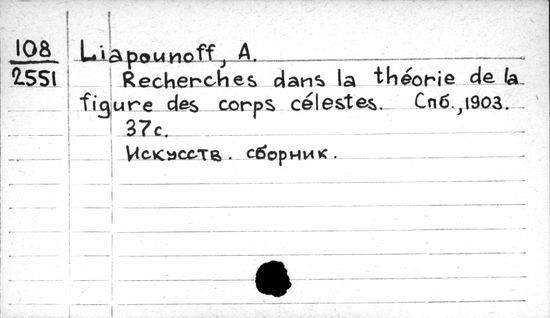 108 Liapounoff, A.
2551 Recherches dans la théorie de la
figure des corps célestes. Спб., 1903.
37с.
Искусств. сборник.